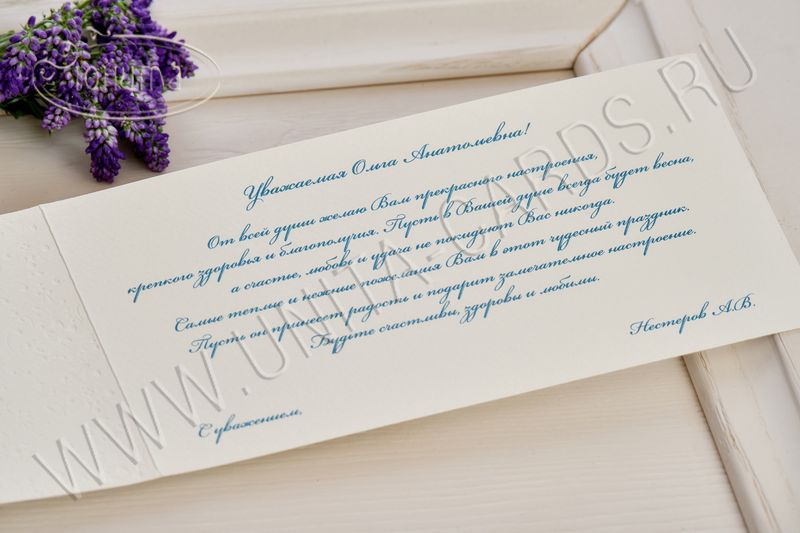 Уважаемая Ольга Анатольевна!
От всей души желаю Вам прекрасного настроения,
крепкого здоровья и благополучия. Пусть в Вашей душе всегда будет весна,
а счастье, любовь и удача не покидают Вас никогда.
Самые теплые и нежные пожелания Вам в этот чудесный праздник.
Пусть он принесет радость и подарит замечательное настроение.
Будьте счастливы, здоровы и любимы.
С уважением,
Нестеров А.В.
WWW.UNITA-CARDS.RU